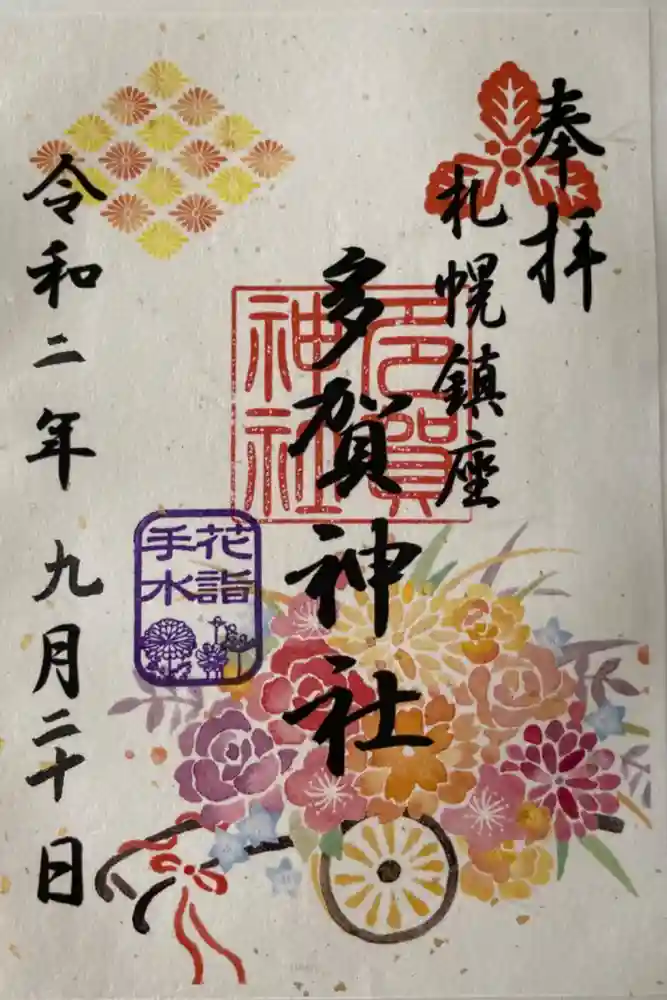 奉拝
札幌鎮座
多賀神社
多賀
神社
花詣
手水
令和二年 九月二十日